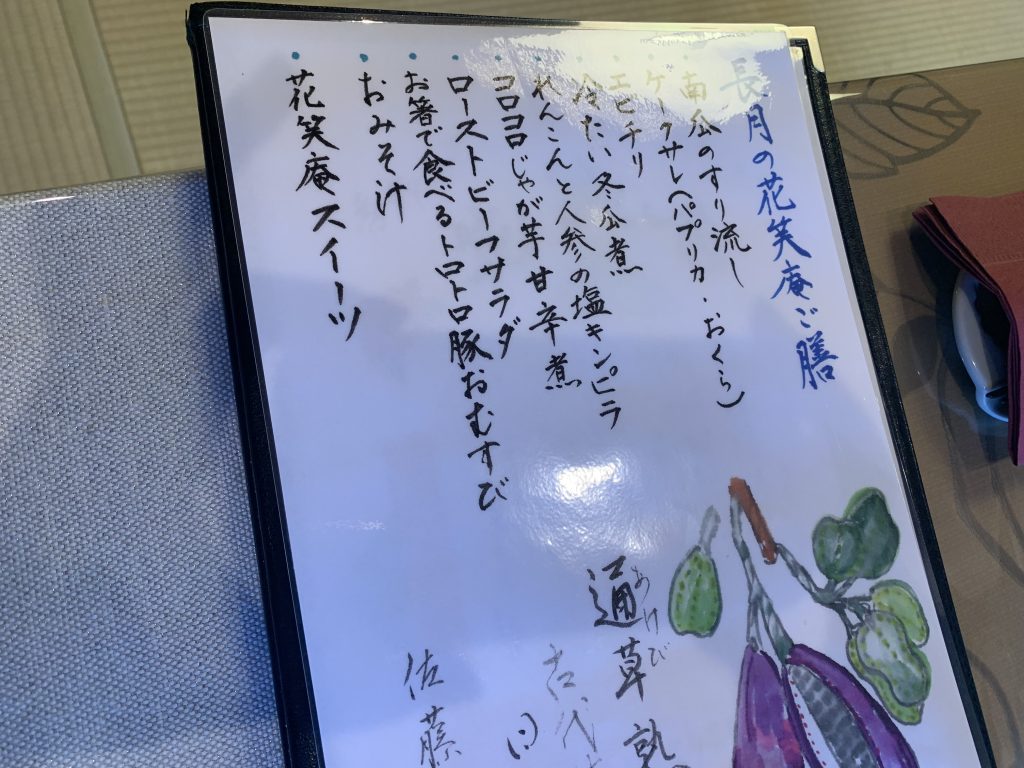 長月の花笑庵ご膳
南瓜のすり流し
ケークサレ(パプリカ・おくら)
エビチリ
冷たい冬瓜煮
れんこんと人参の塩キンピラ
コロコロじゃが芋甘辛煮
ローストビーフサラダ
お箸で食べるトロトロ豚おむすび
おみそ汁
花笑庵スイーツ
あけび
通草熟
古代
日
佐藤